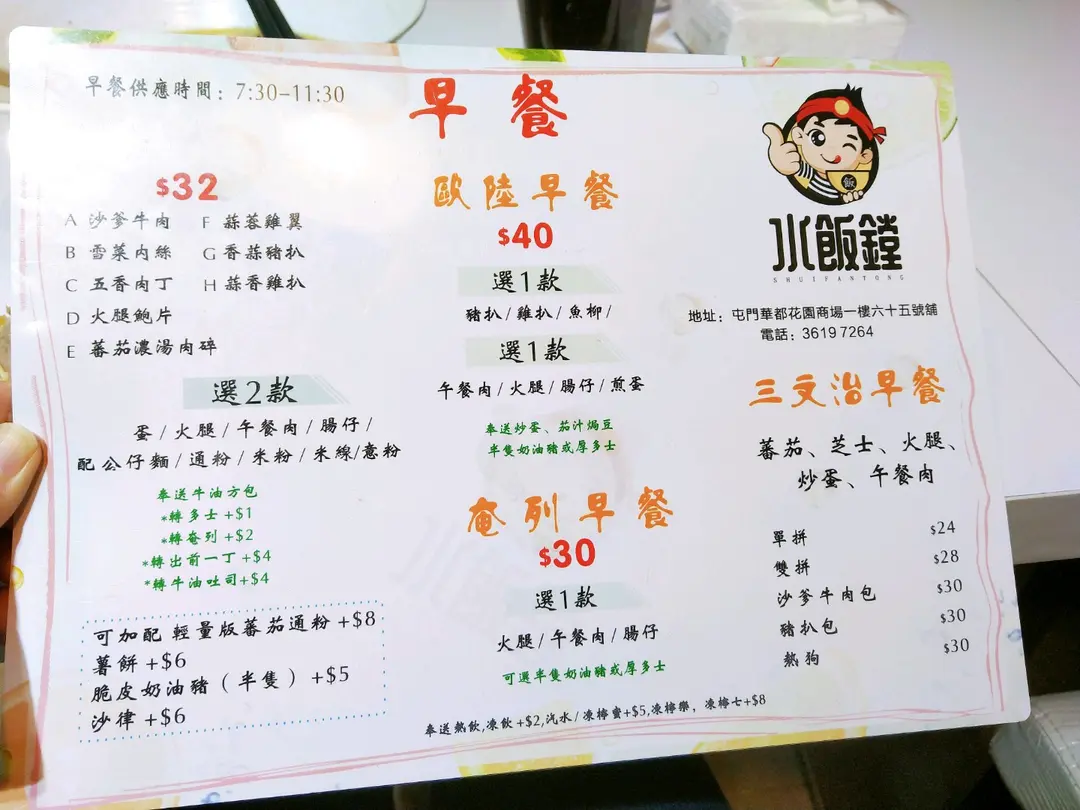 早餐供應時間：7:30-11:30
早餐
$32
A 沙爹牛肉 F 蒜蓉雞翼
B 雪菜肉絲 G 香蒜豬扒
C 五香肉丁 H 蒜香雞扒
D 火腿鮑片
E 蕃茄濃湯肉碎
選2款
蛋/火腿/午餐肉/腸仔/
配公仔麵/通粉/米粉/米線/意粉
奉送牛油方包
*轉多士+$1
*轉奄列+$2
*轉出前一丁+$4
*轉牛油吐司+$4
可加配 輕量版蕃茄通粉+$8
薯餅+$6
脆皮奶油豬（半隻）+$5
沙律+$6
歐陸早餐
$40
選1款
豬扒/雞扒/魚柳/
選1款
午餐肉/火腿/腸仔/煎蛋
奉送炒蛋、茄汁焗豆
半隻奶油豬或厚多士
奄列早餐
$30
選1款
火腿/午餐肉/腸仔
可選半隻奶油豬或厚多士
奉送熱飲,凍飲+$2,汽水/凍檸蜜+$5,凍檸樂，凍檸七+$8
飯
水飯鏜
SHUIFANTONG
地址：屯門華都花園商場一樓六十五號舖
電話：3619 7264
三文治早餐
蕃茄、芝士、火腿、
炒蛋、午餐肉
單拼 $24
雙拼 $28
沙爹牛肉包 $30
豬扒包 $30
熱狗 $30